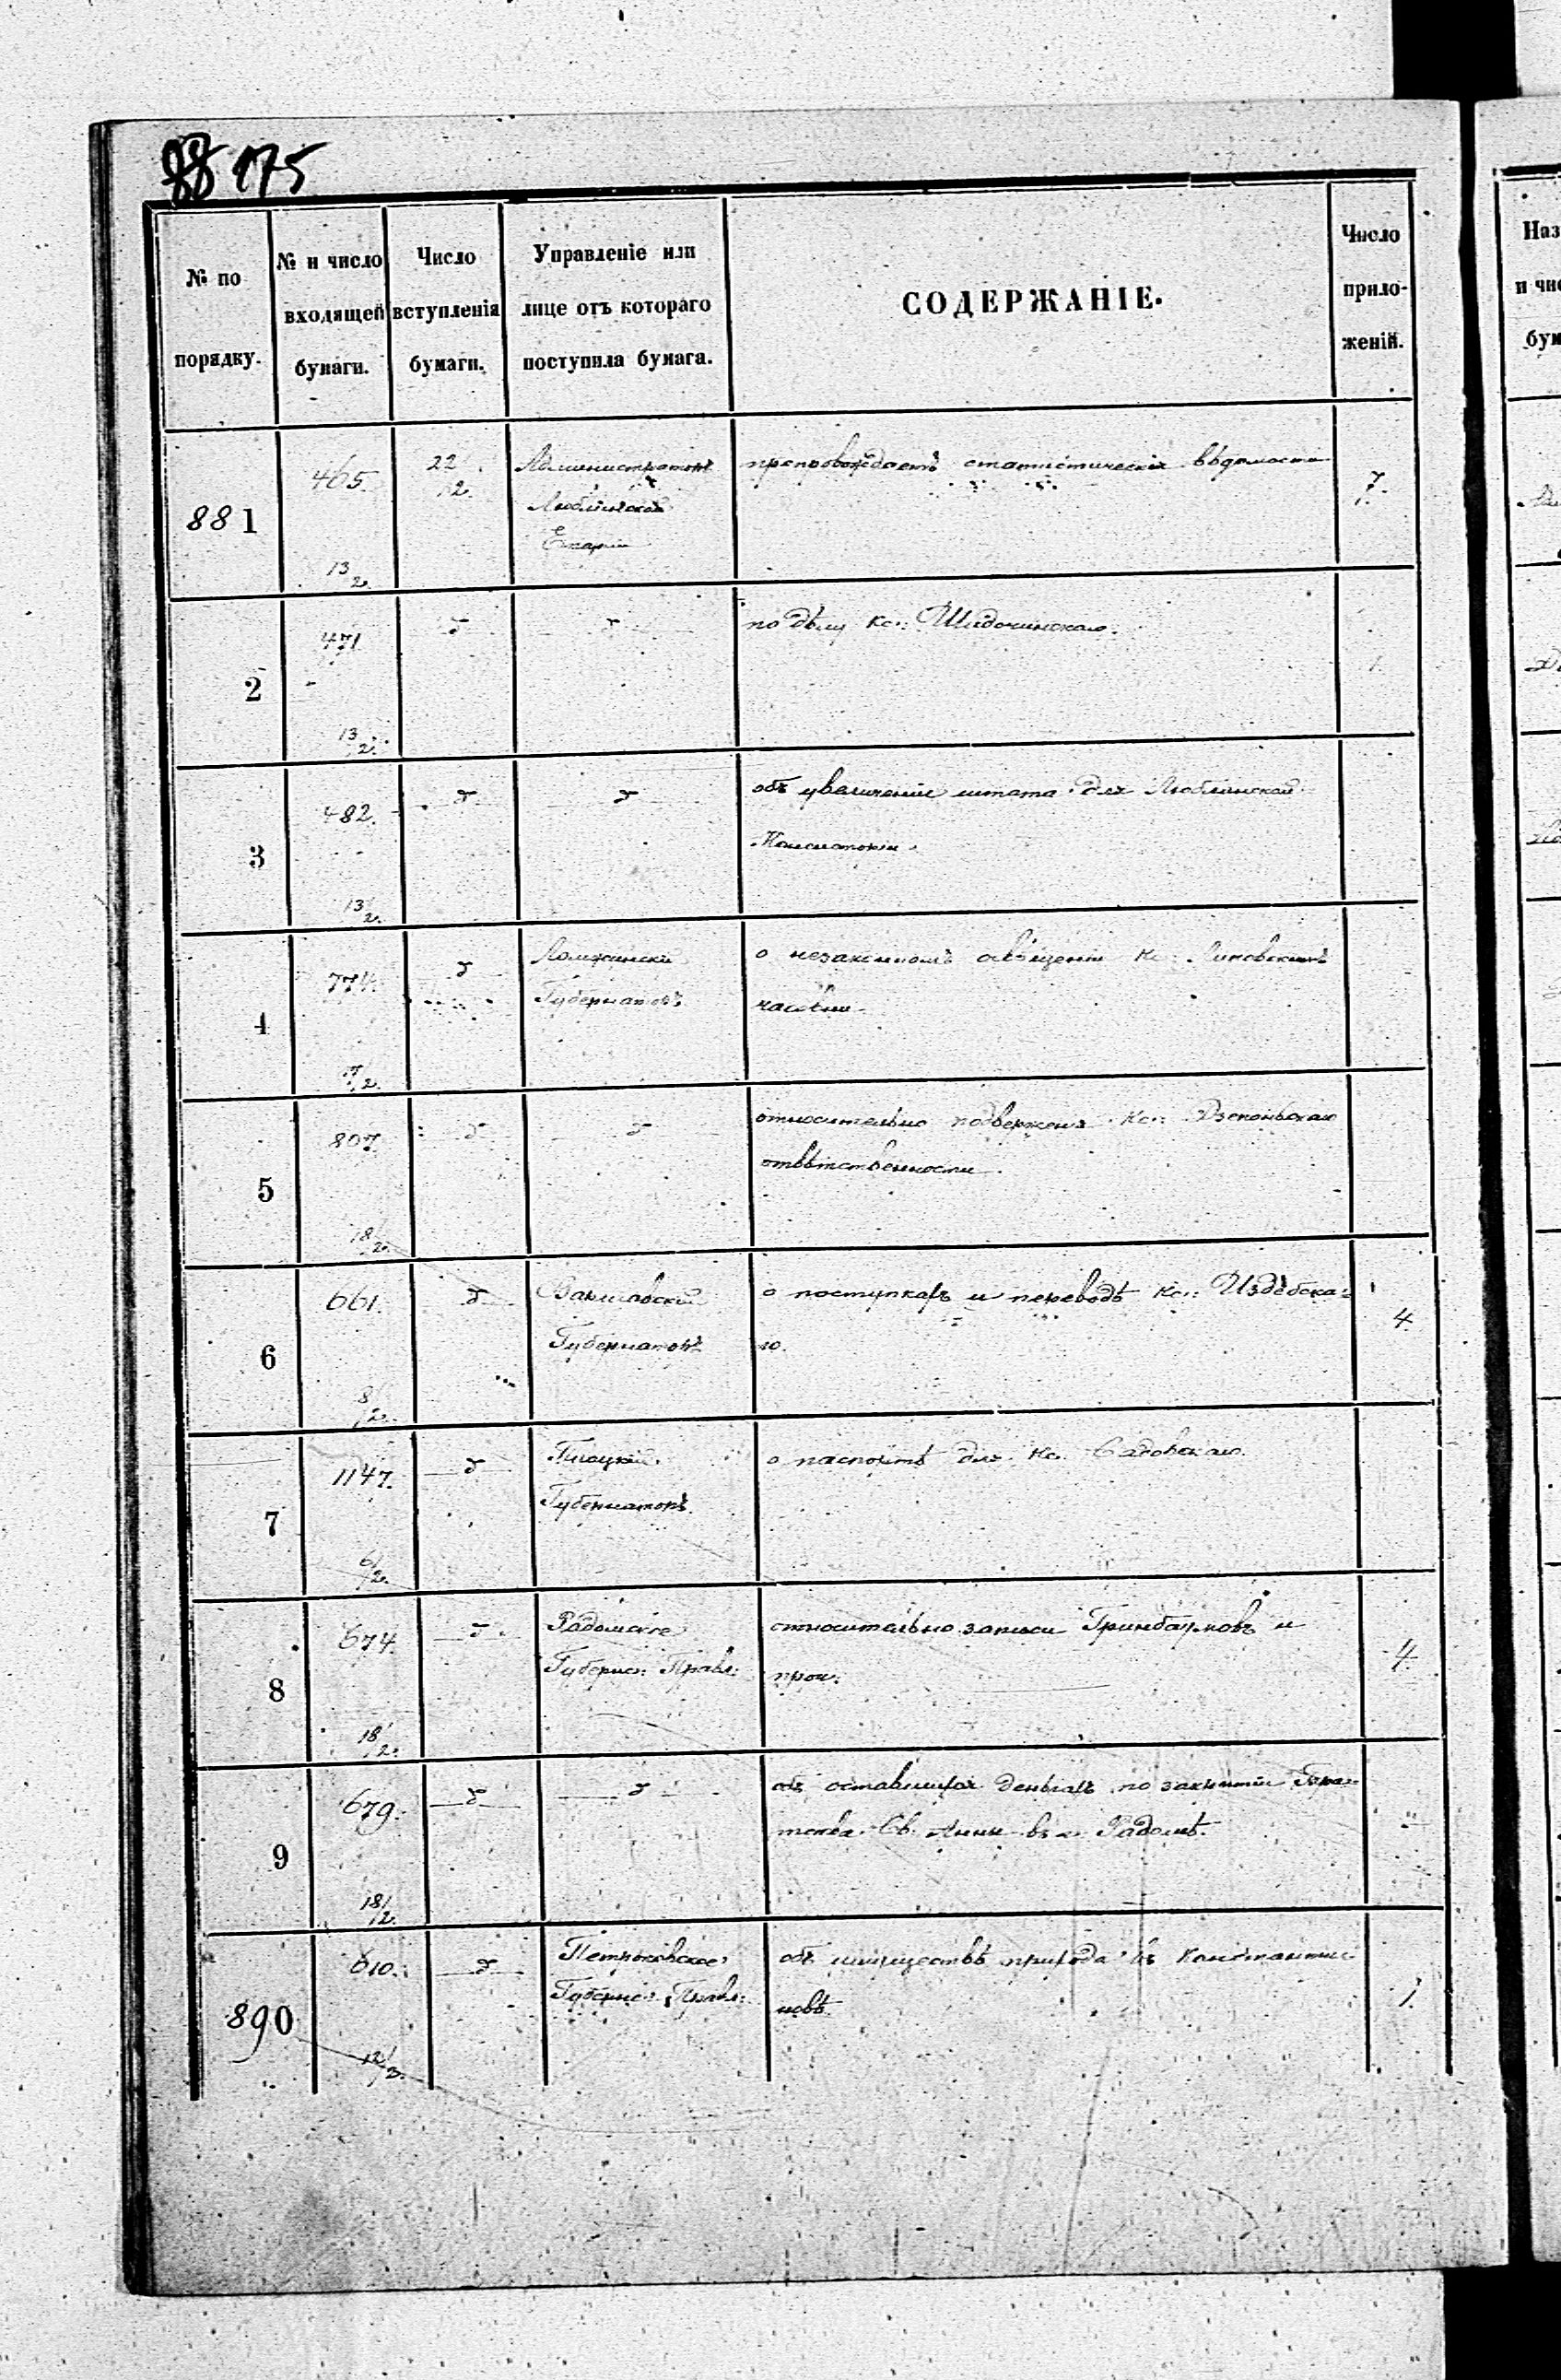 175
№ по порядку.
№ и число входящей бумаги.
Число вступленія бумаги.
Управленіе или лице отъ котораго поступила бумага.
СОДЕРЖАНІЕ.
Число приложеній.
881
465.
13/2.
22/2.
Администраторъ
Люблинской
Епархіи
препровождаетъ статистическія вѣдомости
7.
2
471
13/2.
по дѣлу Кс:
1.
3
482.
13/2.
объ увеличеніи штата для Люблинской
Консисторіи.
4
774.
17/2.
Ломжинскій
Губернаторъ
о незаконномъ освѣщеніи Кс:
часовни.
5
807.
18/2.
относительно подверженія Кс:
отвѣтственности.
6
661.
8/2.
Варшавскій
Губернаторъ
о поступкахъ и переводѣ Кс: Издебска-
го.
4.
7
1147.
6/2.
Плоцкій
Губернаторъ
о паспортѣ для Кс. Садовскаго.
8
674.
18/2.
Радомское
Губернс: Правл:
относительно записи Гринбаумовъ и
проч:
4.
9
679.
18/2.
объ оставшихся деньгахъ по закрытіи Брат-
ства Св. Анны въ г. Радомѣ.
890
610.
12/2.
Петроковское
Губернс: Правл:
объ имуществѣ прихода въ Константи-
новѣ.
1.
Наз
и чис
бум